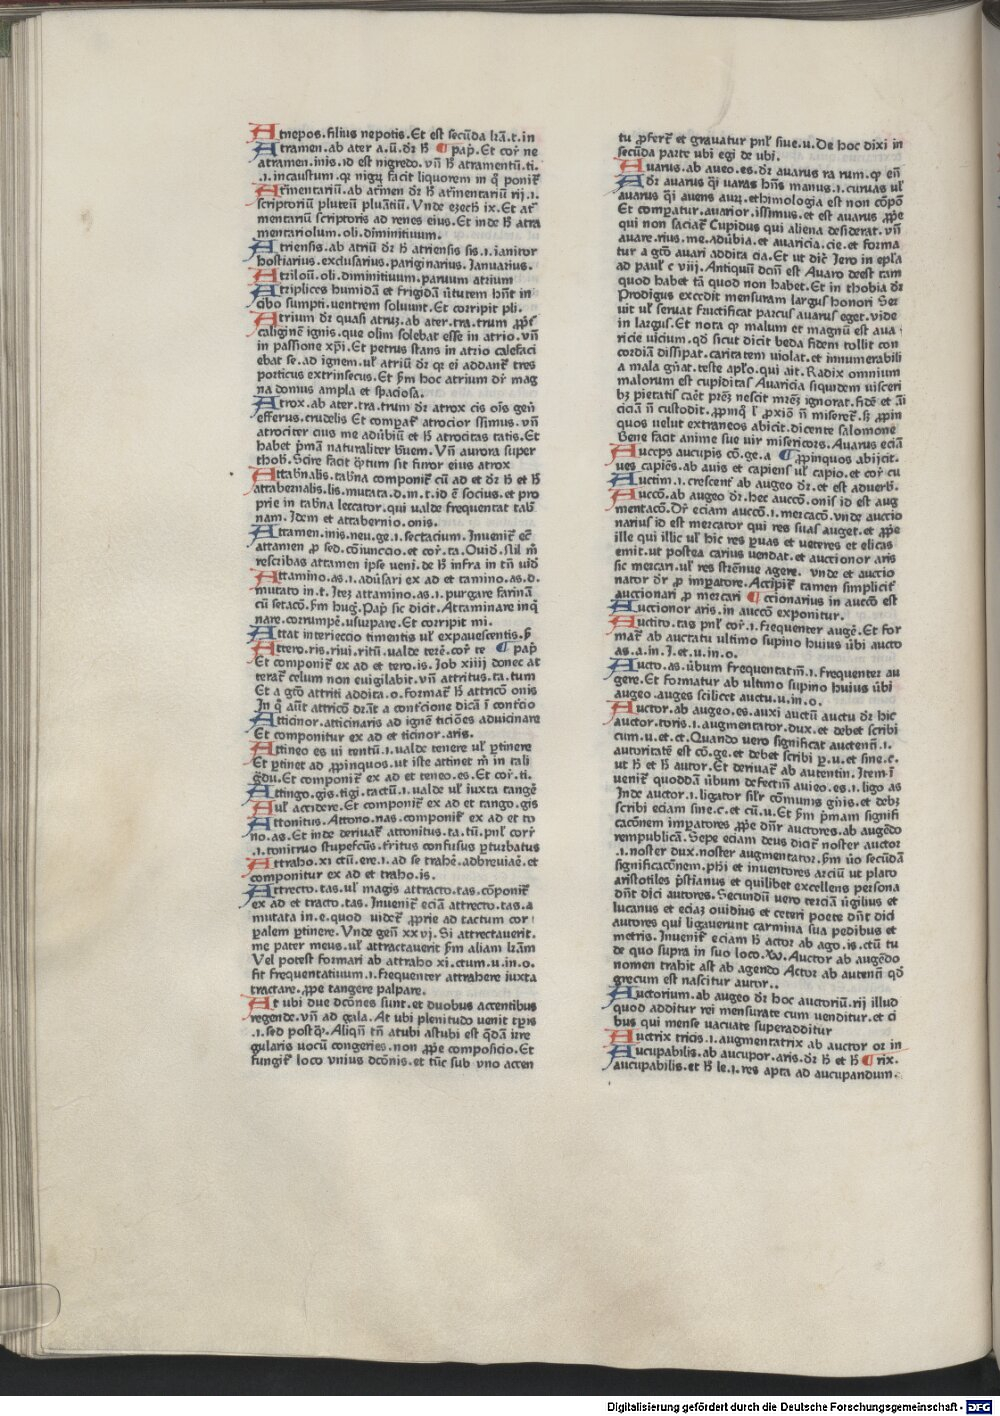 Atnepos.filius nepotis.Et est secũda lr̃a.t.in
Atramen.ab ater a.ũ.dr̃ h̃ ¶ pap̃.Et cor̃ ne
atramen.inis.id est nigredo.vñ h̃ atramentũ.ti.
.i.incaustum.qꝛ nigꝝ facit liquorem in q̃ ponit᷑
Atr̃mentariũ.ab atr̃men dr̃ h̃ atr̃mentariũ rij.i.
scriptoriũ pluteũ pluãtiũ.Vnde ezech̃ ix.Et at᷑
mentariũ scriptoris ad renes eius.Et inde h̃ atra
mentariolum.oli.diminitiuum.
Atriensis.ab atriũ dr̃ h̃ atriensis sis.i.ianitor
hostiarius.exclusarius.pariginarius.Januarius.
Atriloũ.oli.diminitiuum.paruum atrium
Atriplices humidã et frigidã ũtutem hñt in
cibo sumpti.uentrem soluunt.Et corripit pli.
Atrium dr̃ quasi atruꝫ.ab ater.tra.trum ꝓp̃t᷑
caliginẽ ignis.que olim solebat esse in atrio.vñ
in passione xp̃i.Et petrus stans in atrio calefaci
ebat se.ad ignem.ul᷑ atriũ dr̃ qꝛ ei addant᷑ tres
porticus extrinsecus.Et ẜm hoc atrium dr̃ mag
na domus ampla et spaciosa.
Atrox.ab ater.tra.trum dr̃ atrox cis oĩs geñ
efferus.crudelis Et comꝑat᷑ atrocior ssimus.vñ
atrociter cius me adũbiũ et h̃ atrocitas tatis.Et
habet p̃mã naturaliter br̃uem.Vñ aurora super
thob̃.Scire facit q̃tum sit furor eius atrox
Attab̃nalis.tab̃na componit᷑ cũ ad et dr̃ h̃ et h̃
attabernalis.lis.mutata.d.in.t.id ẽ socius.et pro
prie in tab̃na leccator.qui valde frequentat tab̃
nam.Idem et attabernio.onis.
Attamen.inis.neu.ge.i.sectacium.Inuenit᷑ ec̃
attamen ꝓ sed.cõiunccio.et cor̃.ta.Ouid̃.Nil m̃
rescribas attamen ipse ueni.de h̃ infra in tñ uid̃
Attamino.as.i.adũsari ex ad et tamino.as.d.
mutato in.t.Iteꝫ attamino.as.i.purgare farinã
cũ setacõ.ẜm hug̃.Pap̃ sic dicit.Attaminare inq̃
nare.corrumpẽ.usurpare.Et corripit mi.
Attat interieccio timentis ul᷑ expauescentis.ẜ
Attero.ris.riui.ritũ.ualde terẽ.cor̃ te ¶ pap̃
Et componit᷑ ex ad et tero.is.Job xiiij donec at
terat᷑ celum non euigilabit.vñ attritus.ta.tum
Et a gtõ attriti addita.o.format᷑ h̃ attricõ onis
In q̃ aũt attricõ dr̃ãt a contricione dicã ĩ contricio
Atticinor.atticinaris ad ignẽ ticiões aduicinare
Et componitur ex ad et ticinor.aris.
Attineo es ui tentũ.i.ualde tenere ul᷑ ꝑtinere
Et ꝑtinet ad ꝓpinquos.ut iste attinet m̃ in tali
g̃du.Et componit᷑ ex ad et teneo.es.Et cor̃.ti.
Attingo.gis.tigi.tactũ.i.ualde ul᷑ iuxta tangẽ
Aul᷑ accidere.Et componit᷑ ex ad et tango.gis
Attonitus.Attono.nas.componit᷑ ex ad et to
no.as.Et inde deriuat᷑ attonitus.ta.tũ.pnl᷑ corr̃
.i.tonitruo stupefcũs.t᷑ritus confusus ꝑturbatus
Attraho.xi ctũ.ere.i.ad se trahẽ.abbreuiaẽ.et
componitur ex ad et traho.is.
Attrecto.tas.ul᷑ magis attracto.tas.cõponit᷑
ex ad et tracto.tas.Inuenit᷑ eciã attrecto.tas.a
mutata in.e.quod uidet᷑ ꝓprie ad tactum cor
ꝑalem ꝑtinere.Vnde geñ xxvj.Si attrectauerit.
me pater meus.ul᷑ attractauerit ẜm aliam lr̃am
Vel potest formari ab attraho xi.ctum.u.in.o.
fit frequentatiuum.i.frequenter attrahere iuxta
tractare.ꝓpe tangere palpare.
At ubi due dcõnes sunt.et duobus accentibus
regende.vñ ad gala.At ubi plenitudo uenit tꝑis
.i.sed postq̃.Aliqñ tñ atubi astubi est q̃dã irre
gularis uocũ congeries.non ꝓpe composicio.Et
fungit᷑ loco vnius dcõnis.et tũc sub vno accen
tu ꝓfert᷑ et grauatur pnl᷑ siue.u.De hoc dixi in
secũda parte ubi egi de ubi.
Auarus.ab aueo.es.dr̃ auarus ra rum.qꝛ eñ
Adr̃ auarus q̃i uaras hñs manus.i.curuas ul᷑
auarus q̃i auens auꝝ.ethimologia est non cõpõ
Et comꝑatur.auarior.issimus.et est auarus ꝓpe
qui non saciat᷑ Cupidus qui aliena desiderat.vñ
auare.rius.me.adũbia.et auaricia.cie.et forma
tur a gtõ auari addita cia.Et ut dic̃ Jero in ep̃la
ad paul᷑ c viij.Antiquũ dcm̃ est Auaro deest tam
quod habet tã quod non habet.Et in thobia dr̃
Prodigus excedit mensuram largus honori Ser
uit ul᷑ seruat fructificat parcus auarus eget.vide
in largus.Et nota qꝛ malum et magnũ est aua
ricie uicium.qd̃ sicut dicit beda fidem tollit con
cordiã dissipat.caritatem uiolat.et innumerabili
a mala gñat.teste apl᷑o.qui ait.Radix omnium
malorum est cupiditas Auaricia siquidem uisceri
bꝫ pietatis caẽt pr̃eꝫ nescit mr̃eꝫ ignorat.fidẽ et aĩ
ciciã ñ custodit.ꝓpinq̃ l᷑ ꝓxiõ ñ miseret᷑.sꝫ ꝓpin
quos uelut extraneos abicit.dicente salomone
Bene facit anime sue uir misericors.Auarus eciã
Auceps aucupis cõ.ge.a ¶ ꝓpinquos abijcit.
ues capiẽs.ab auis et capiens ul᷑ capio.et cor̃ cu
Auctim.i.crescent᷑ ab augeo dr̃.et est aduerb̃.
Auccõ.ab augeo dr̃.hec auccõ.onis id est aug
mentacõ.Dr̃ eciam auccõ.i.mercacõ.vnde auccio
narius id est mercator qui res suas auget.et ꝓpe
ille qui illic ul᷑ hic res ꝑuas et ueteres et elicas
emit.ut postea carius uendat.et auccionor aris
sic mercari.ul᷑ res strẽnue agere. vnde et auccio
nator dr̃ ꝓ imꝑatore.Accipit᷑ tamen simplicit᷑
auccionari ꝓ mercari ¶ ccionarius in auccõ est
Auccionor aris.in auccõ exponitur.
Auctito.tas pnl᷑ cor̃.i.frequenter augẽ.Et for
mat᷑ ab auctatu ultimo supino huius ũbi aucto
as.a.in.I.et.u.in.o.
Aucto.as.ũbum frequentatm̃.i.frequenter au
gere.Et formatur ab ultimo supino huius ũbi
augeo.auges scilicet auctu.u.in.o.
Auctor.ab augeo.es.auxi auctũ auctu dr̃ hic
auctor.toris.i.augmentator.dux.et debet scribi
cum.u.et.ct.Quando uero significat auctenñ.i.
autoritatẽ est cõ.ge.et debet scribi ꝑ.u.et sine.c.
ut h̃ et h̃ autor.Et deriuat᷑ ab autentin.Item.ĩ
uenit᷑ quoddã ũbum defectm̃ auieo.es.i.ligo as
Inde auctor.i.ligator sil᷑r cõmunis gñis.et debꝫ
scribi eciam sine.c.et cũ.u.Et ẜm p̃mam signifi
cacõnem imꝑatores ꝓpe dñr auctores.ab augẽdo
rempublicã.Sepe eciam deus dicit᷑ noster auctor
.i.noster dux.noster augmentator.ẜm ũo secũdã
significacõnem.ph̃i et inuentores arciũ ut plato
aristotiles p̃stianus et quilibet excellens persona
dñt dici autores.Secundũ uero terciã ũgilius et
lucanus et eciaꝫ ouidius et ceteri poete dñt dici
autores qui ligauerunt carmina sua pedibus et
metris.Inuenit᷑ eciam h̃ actor ab ago.is.ctũ tu
de quo supra in suo loco.Xƿ.Auctor ab augẽdo
nomen trahit ast ab agendo Actor ab autenñ qd̃
grecum est nascitur autor..
Auctorium.ab augeo dr̃ hoc auctoriũ.rij illud
quod additur rei mensurate cum uenditur.et ci
bus qui mense uacuate superadditur
Auctrix tricis.i.augmentatrix ab auctor or in
Aucupabilis.ab aucupor.aris.dr̃ h̃ et h̃ ¶ rix.
aucupabilis.et h̃ le.i.res apta ad aucupandum.
Digitalisierung gefördert durch die Deutsche Forschungsgemeinschaft - DFG